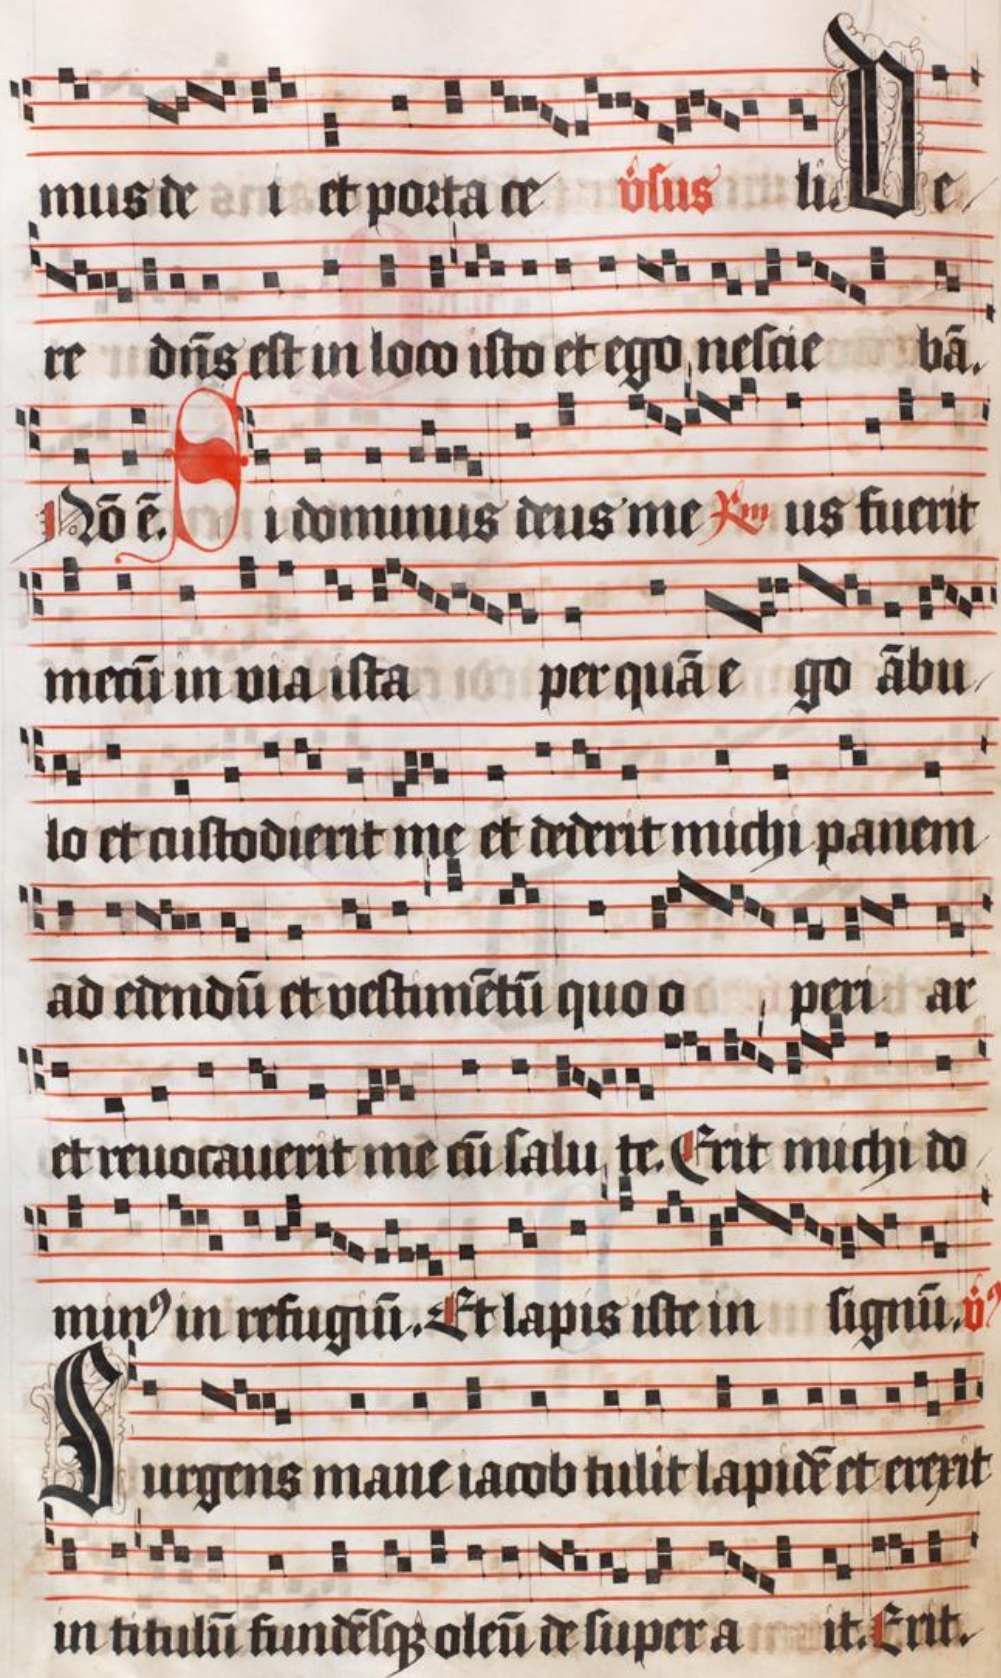 mus de i et porta ce v̄sus li. D e
re dn̄s est in loco isto et ego nescie bā.
Nō ē. S i dominus deus me Rm us fuerit
mecū in via ista per quā e go ābu
lo et custodierit me et dederit michi panem
ad edendū et vestimētū quo o peri ar
et reuocauerit me cū salu te. Erit michi do
minꝰ in refugiū. Et lapis iste in signū. v̄ꝰ
S urgens mane iacob tulit lapidē et erexit
in titulū fundēsqꝫ oleū de super a it. Erit.